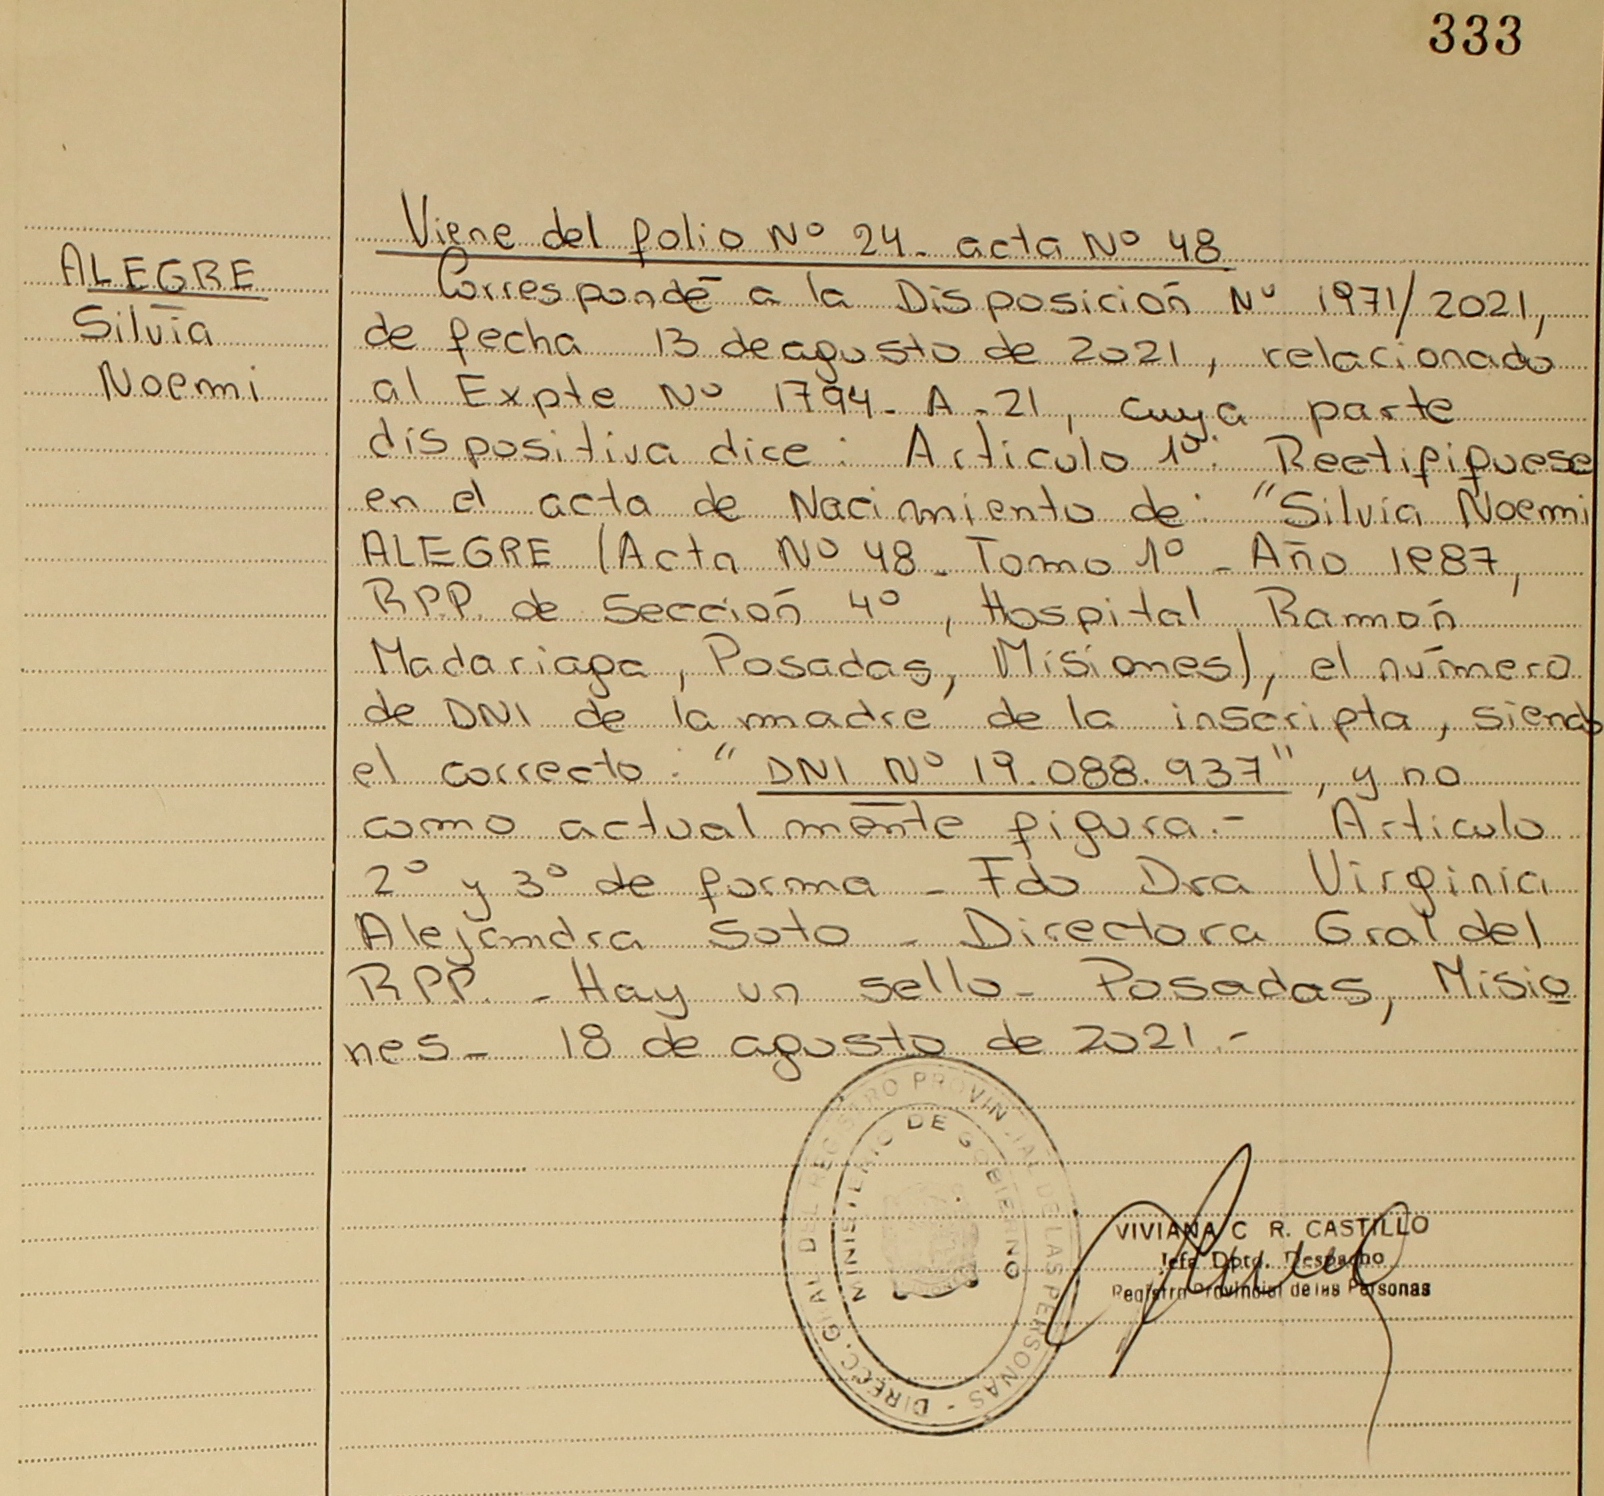 333
ALEGRE
Silvia
Noemi
Viene del folio Nº 24 - acta Nº 48
Corresponde a la Disposición Nº 1971/2021,
de fecha 13 de agosto de 2021, relacionado
al Expte Nº 1794 - A - 21, cuya parte
dispositiva dice: Articulo 1º: Rectifiquese
en el acta de Nacimiento de: "Silvia Noemi
ALEGRE (Acta Nº 48 - Tomo 1º - Año 1987,
RPP. de Sección 4º, Hospital Ramón
Madariaga, Posadas, Misiones), el número
de DNI de la madre de la inscripta, siendo
el correcto: "DNI Nº 19.088.937", y no
como actualmente figura.- Articulo
2º y 3º de forma - Fdo Dra Virginia
Alejandra Soto - Directora Gral del
RPP. - Hay un sello - Posadas, Misio
nes - 18 de agosto de 2021.-
DIREC. GRAL DEL REGISTRO PROVINCIAL DE LAS PERSONAS -
MINISTERIO DE GOBIERNO
VIVIANA C R. CASTILLO
Jefe Dpto. Despacho
Registro Provincial de las Personas